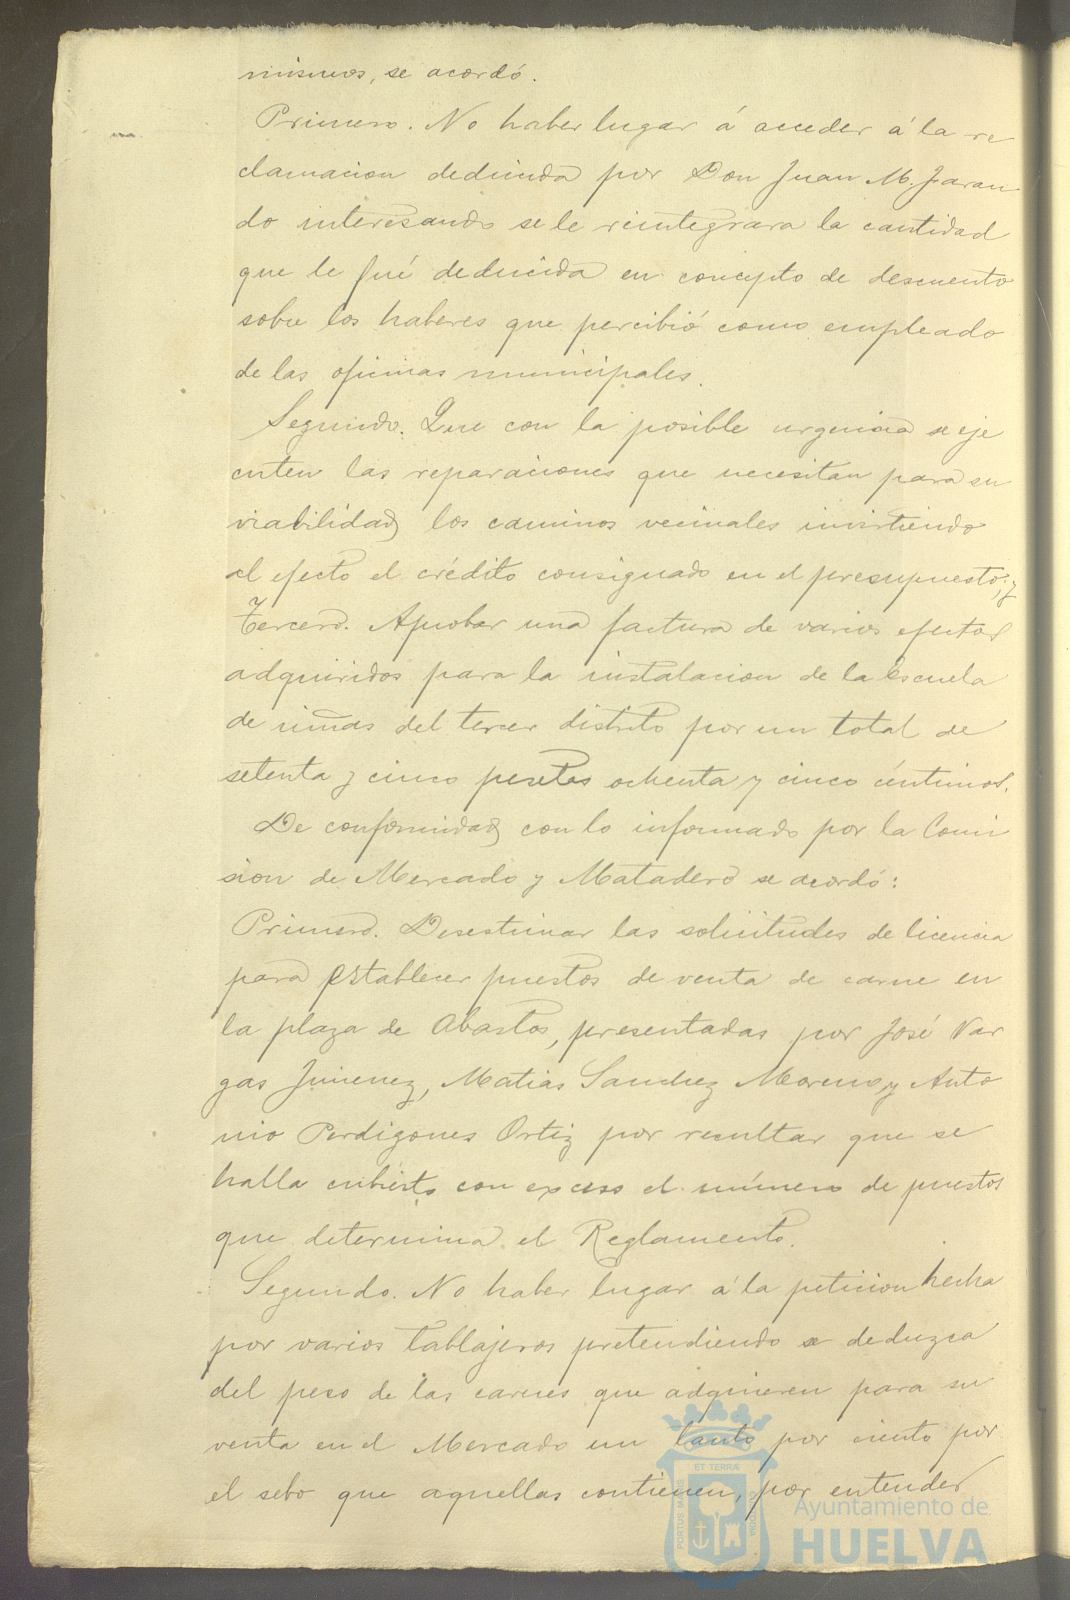 mismos, se acordó.
Primero. No haber lugar á acceder á la re
clamacion deducida por Don Juan M. Jaran
do interesando se le reintegrara la cantidad
que le fué deducida en concepto de descuento
sobre los haberes que percibió como empleado
de las oficinas municipales.
Segundo. Que con la posible urgencia se eje
cuten las reparaciones que necesitan para su
viabilidad los caminos vecinales invirtiendo
al efecto el crédito consignado en el presupuesto; y
Tercero. Aprobar una factura de varios efectos
adquiridos para la instalacion de la escuela
de niñas del tercer distrito por un total de
setenta y cinco pesetas ochenta y cinco céntimos.
De conformidad con lo informado por la Comi
sion de Mercado y Matadero se acordó:
Primero. Desestimar las solicitudes de licencia
para establecer puestos de venta de carne en
la plaza de Abastos, presentadas por José Var
gas Jimenez, Matias Sanchez Moreno, y Anto
nio Perdigones Ortiz por resultar que se
halla cubierto con exceso el número de puestos
que determina el Reglamento.
Segundo. No haber lugar á la peticion hecha
por varios tablajeros pretendiendo se deduzca
del peso de las carnes que adquieren para su
venta en el Mercado un tanto por ciento por
el sebo que aquellas contienen, por entender
PORTUS MARIS
ET TERRÆ
CUSTODIA
Ayuntamiento de
HUELVA